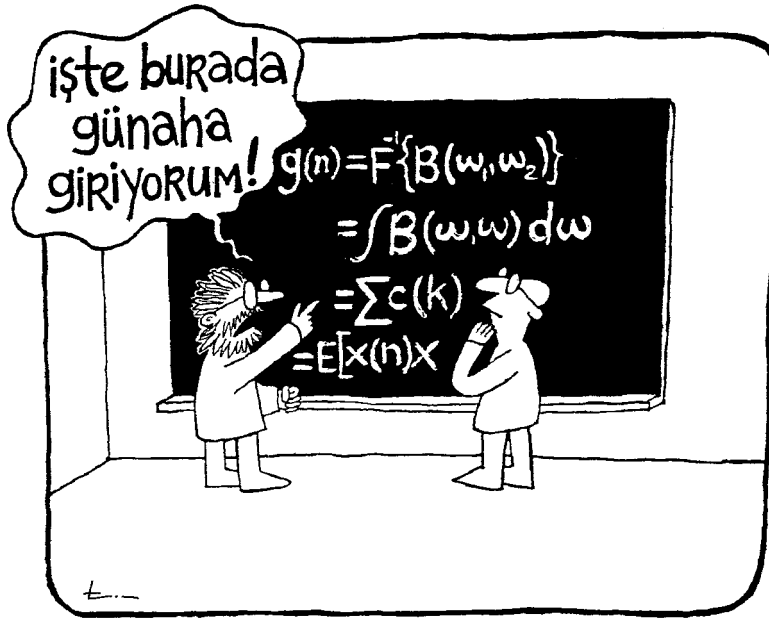 işte burada
günaha
giriyorum!
g(n)=F⁻¹{B(ω₁,ω₂)}
=∫B(ω,ω)dω
=∑c(k)
=E[x(n)x